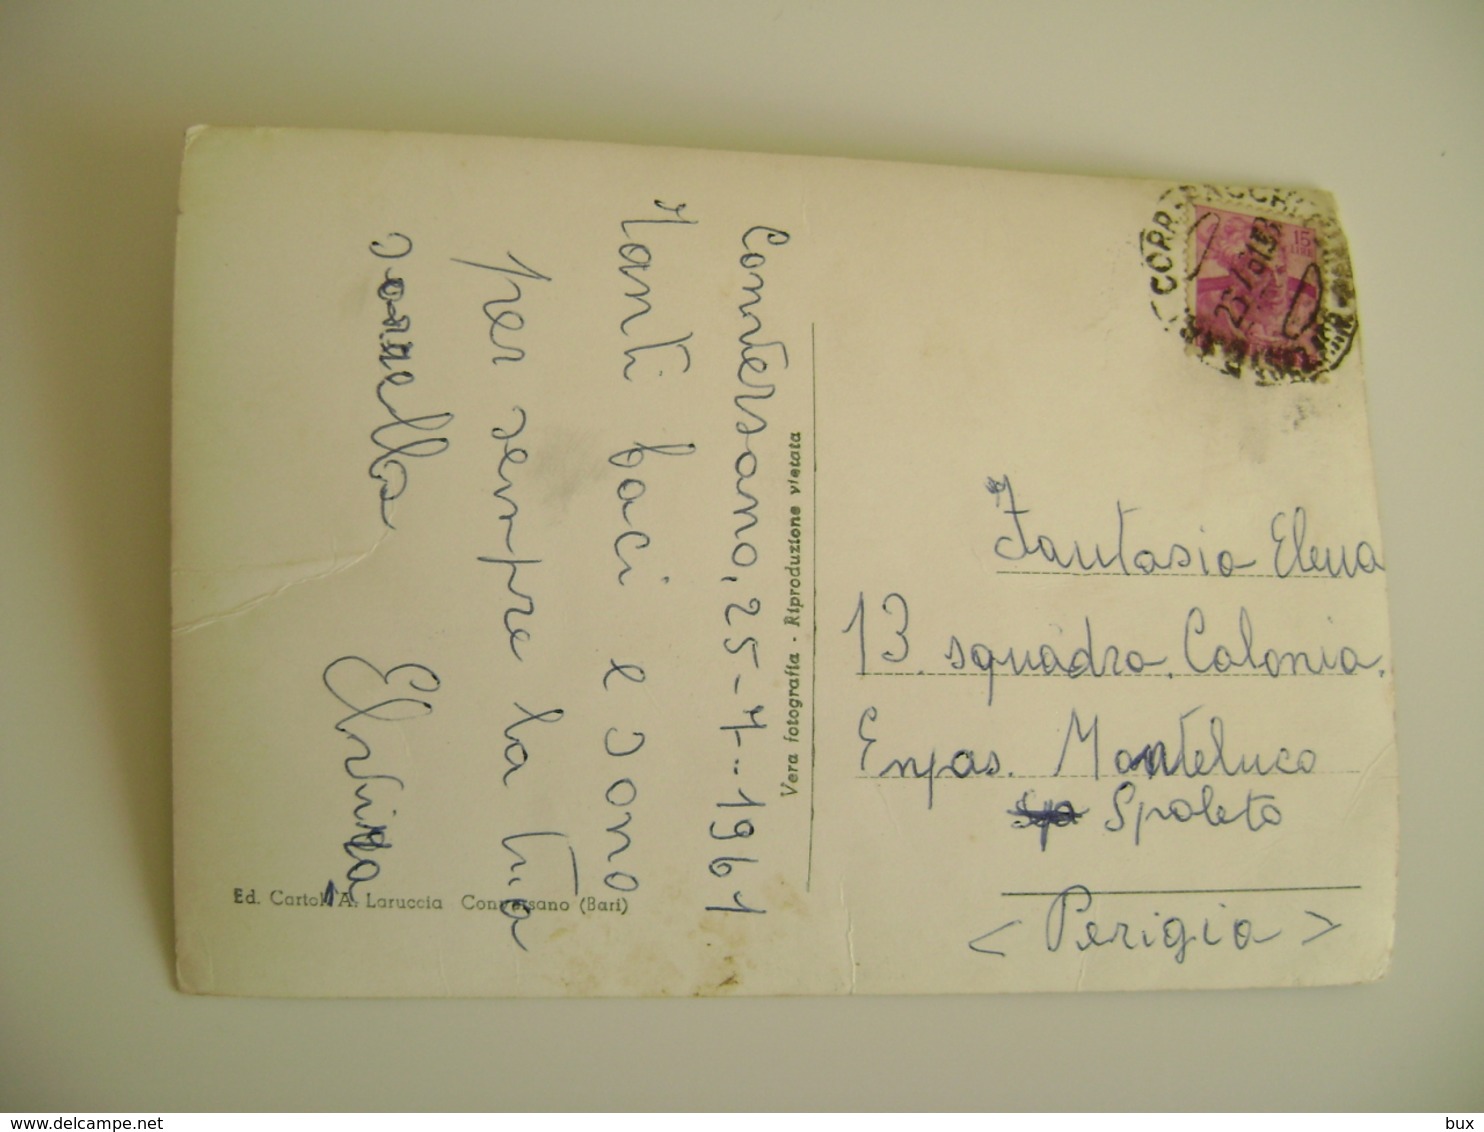 Comversano, 25-7--1961
Tanti baci e sono
per sempre la tua
sorella
Elvira
Vera fotografia - Riproduzione vietata
Ed. Cartol. A. Laruccia Conversano (Bari)
15
LIRE
Fantasia Elena
13 squadra. Colonia.
Enpas. Monteluco
Spoleto
< Perigia >
delcampe.net
bux